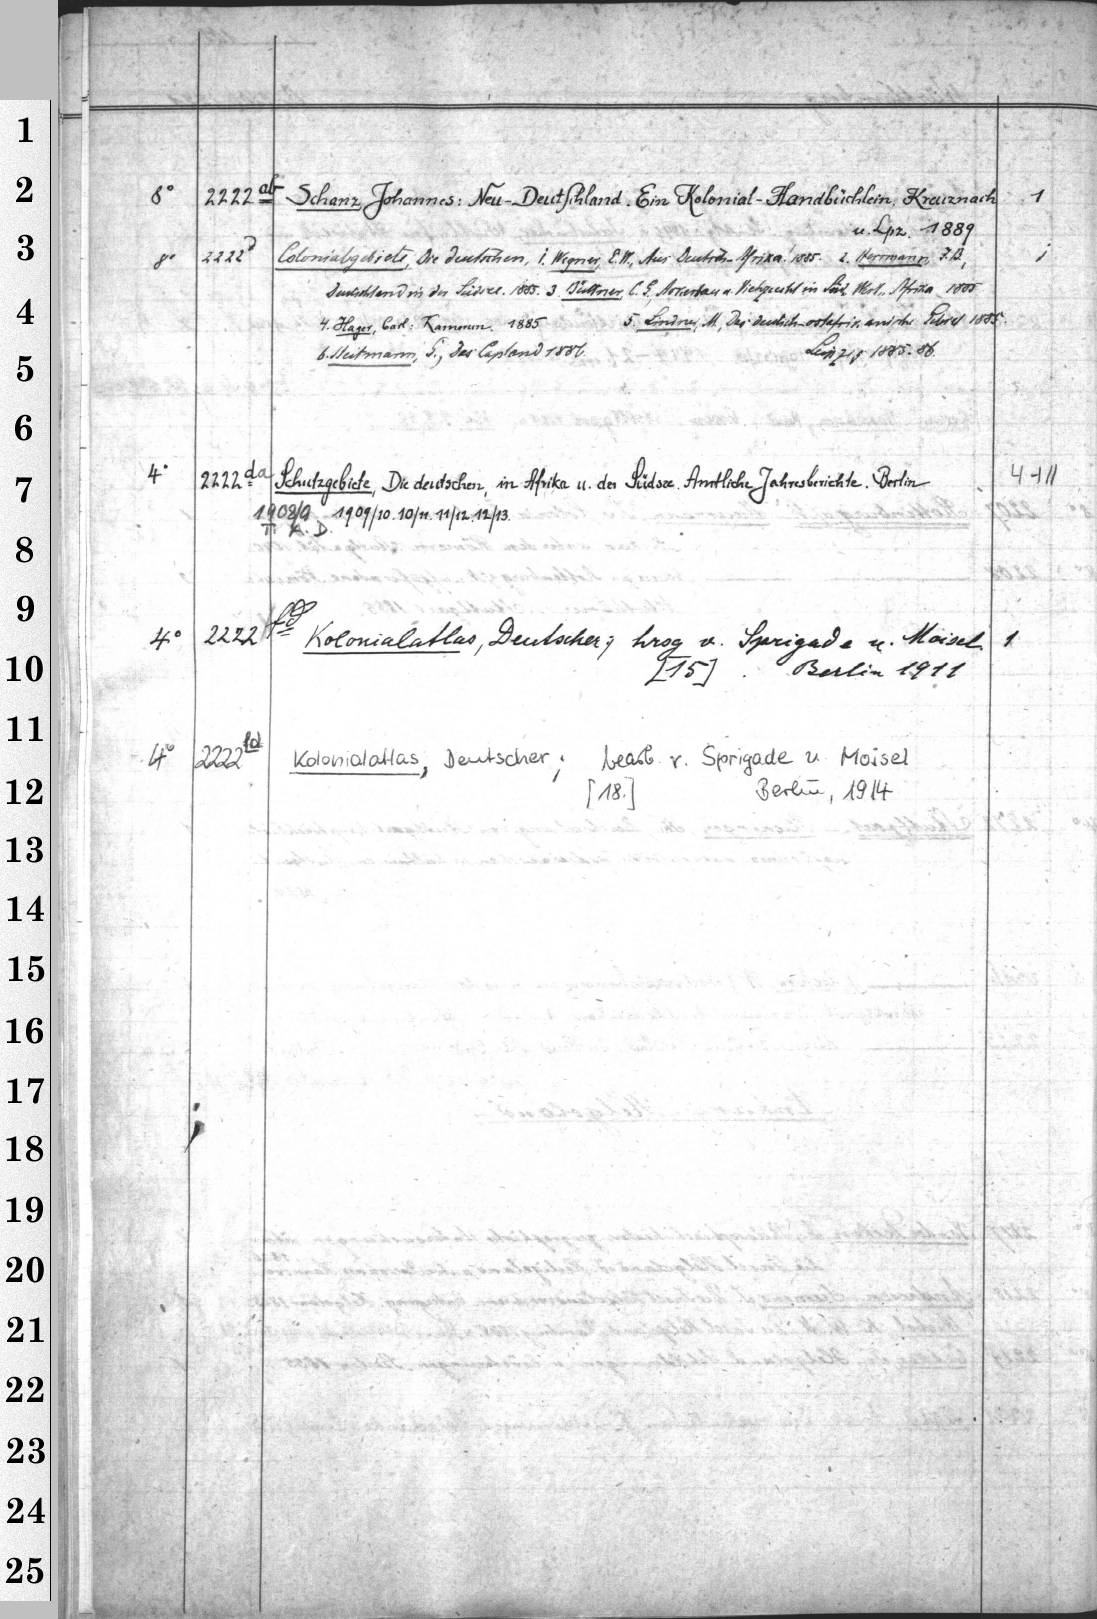 1
2
3
4
5
6
7
8
9
10
11
12
13
14
15
16
17
18
19
20
21
22
23
24
25
8° 2222 ab Schanz, Johannes: Neu-Deutschland. Ein Kolonial-Handbüchlein, Kreuznach 1
u. Lpz. 1889
8° 2222 d Colonialgebiete, Die deutschen, 1. Wegner, E.W., Aus Deutsch Afrika! 1885. 2. Herrmann, 1
Deutschland in der Südsee. 1885. 3 Büttner, C. G., Ackerbau u. Viehzucht in Süd West-Afrika 1885
4. Hager, Carl: Kamerun. 1885 5. Lindner, M., Das deutsch-ostafrikanische Gebiet 1885.
6. Das Capland 1886. Leipzig 1885-86.
4° 2222 da Schutzgebiete, Die deutschen, in Afrika u. der Südsee. Amtliche Jahresberichte. Berlin
1908/9 1909/10. 10/11. 11/12. 12/13.
4° 2222 Kolonialatlas, Deutscher; hrsg v. Sprigade u. Moisel. 1
[15] Berlin 1911
4° 2222 fd Kolonialatlas, Deutscher; bearb. v. Sprigade u. Moisel
[18.] Berlin, 1914